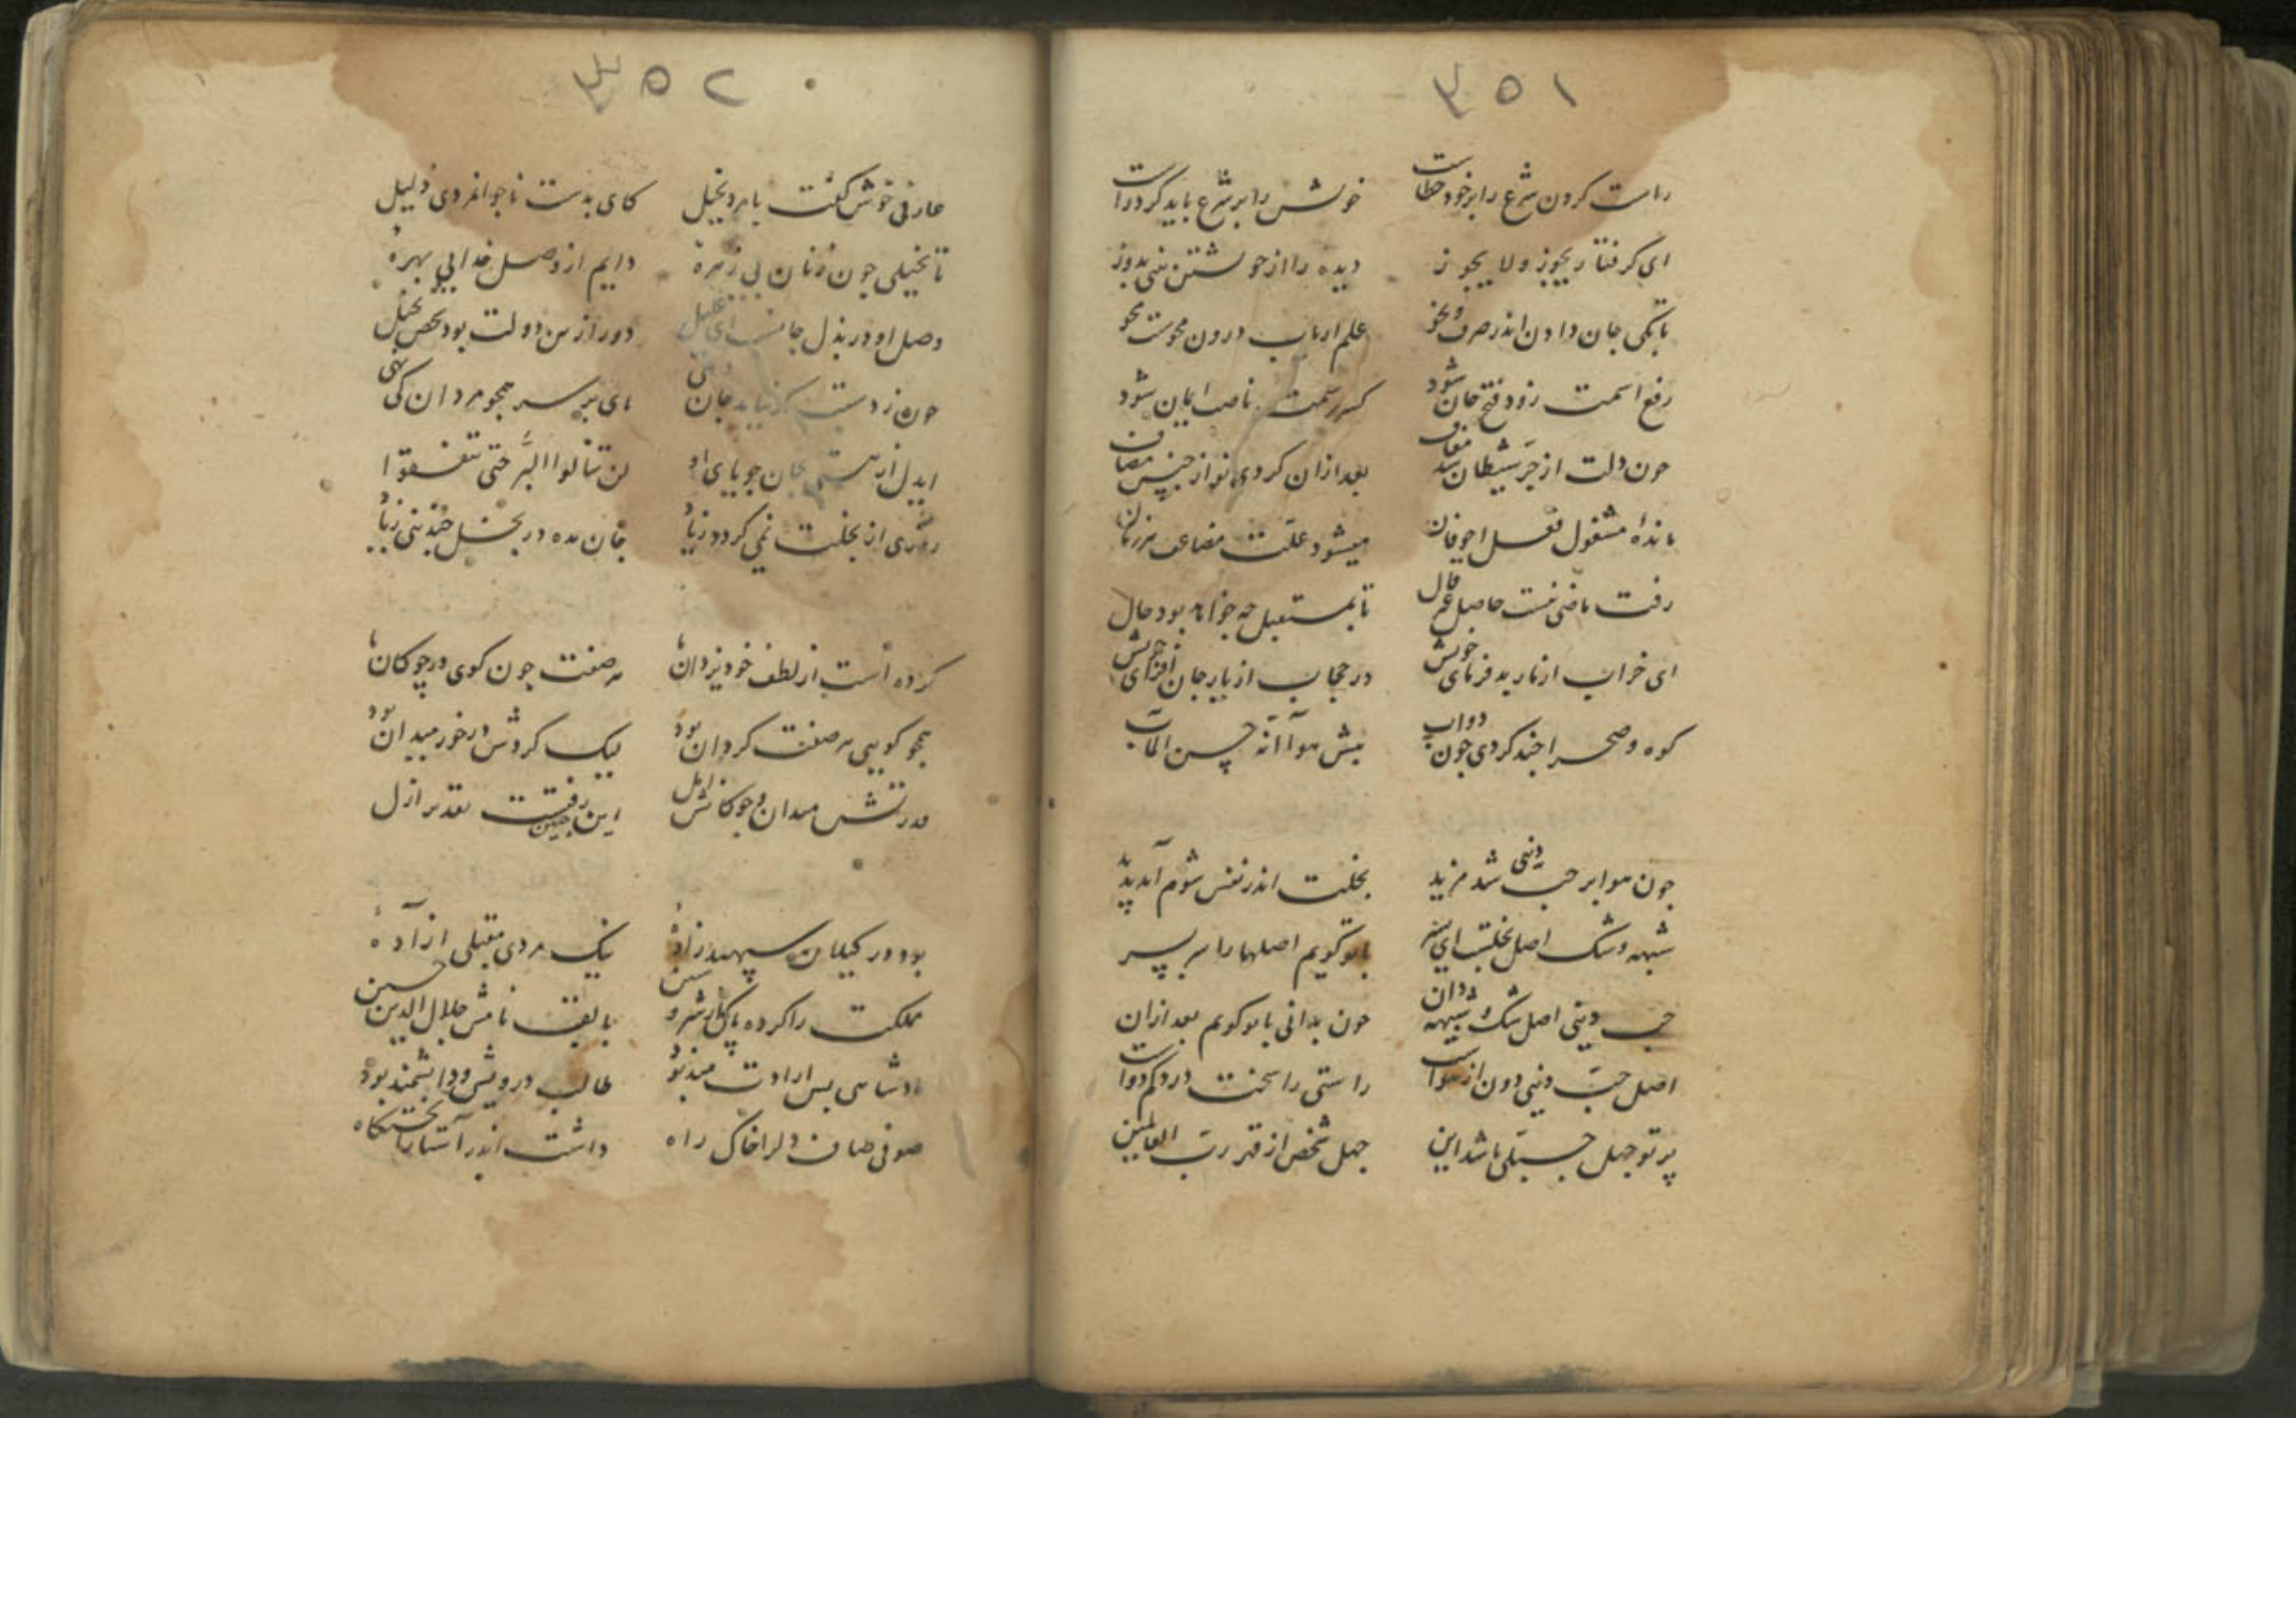 ۳۵۱
راست کردن شرع را بر خود خطاست خویش را بر شرع باید کرد راست
ای گرفتار یجوز و لا یجوز دیده را از خویشتن بینی بدوز
تا بکی جان دادن اندر صرف و نحو علم ارباب درون محوست محو
رفع اسمت زود فتح جان شود کسر رسمت ناصب ایمان شود
چون دلت از جر شیطان شد معاف بعد ازان کردی تو از جنس مضاف
ماندهٔ مشغول فعل اجوفان میشود علت مضاعف هر زمان
رفت ماضی نیست حاصل غیر قال تا بمستقبل چه خواهد بود حال
ای خراب از نار بد فرمای خویش در حجاب از یار جان افزای خویش
کوه و صحرا چند گردی چون دواب پیش هو آ انه حسن المآب
چون هوا بر حب دنیی شد مزید بخلت اندر نفس شوم آمد پدید
شبهه و شک اصل بخلت ای پسر با تو گویم اصلها را سر بسر
حب دنیی اصل شک و شبهه دان چون بدانی با تو گویم بعد ازان
اصل حب دنیی دون از هواست راستی را سخت درد کم دواست
پرتو جهل جبلی باشد این جهل شخص از قهر رب العالمین
۳۵۲
عارفی خوش گفت با مرد بخیل کای بدست ناجوانمردی ذلیل
تا بخیلی چون زنان بی زهرهٔ دایم از وصل خدا بی بهرهٔ
وصل او در بذل جانست ای دور ازین دولت بود شخص بخیل
چون ز دستت بر نیاید جان دهی پای بر سر همچو مردان کی نهی
ایدل از هستی بجان جویای او لن تنالوا البر حتی تنفقوا
روزی از بخلت نمی گردد زیاد جان مده در بخل چندینی زیاد
کرده است از لطف خود یزدان ما صفت چون گوی در چوگان ما
همچو گویی هر صفت گردان بود لیک گردش در خور میدان بود
قدرتش میدان و چوگانش ازل این چنین رفتست تقدیر ازل
بود در گیلان سپهبد زادهٔ نیک مردی مقبلی آزادهٔ
مملکت را کرده پاک از شر و شین با لقب نامش جلال الدین حسین
پادشاهی بس ارادتمند بود طالب درویش و دانشمند بود
صوفی صاف دلرا خاک راه داشت اندر آستارا تختگاه